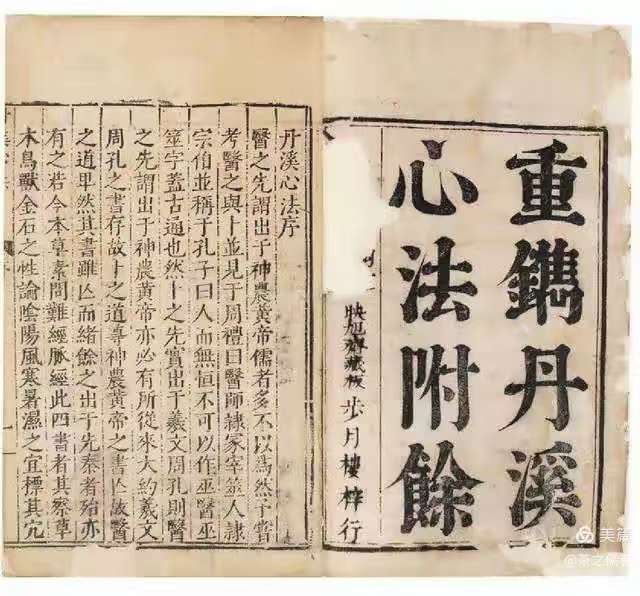 重鐫丹溪
心法附餘
映旭齋藏板 步月樓梓行
丹溪心法序
醫之先謂出于神農黃帝儒者多不以爲然予嘗
考醫之與卜並見于周禮曰醫師隷冢宰筮人隷
宗伯並稱于孔子曰人而無恒不可以作巫醫巫
筮字蓋古通也然卜之先實出于羲文周孔則醫
之先謂出于神農黃帝亦必有所從來大約羲文
周孔之書存故卜之道尊神農黃帝之書亾故醫
之道卑然其書雖亾而緒餘之出于先秦者殆亦
有之若今本草素問難經脈經此四書者其察草
木鳥獸金石之性論陰陽風寒暑濕之宜標其穴
美篇
@茶之儒